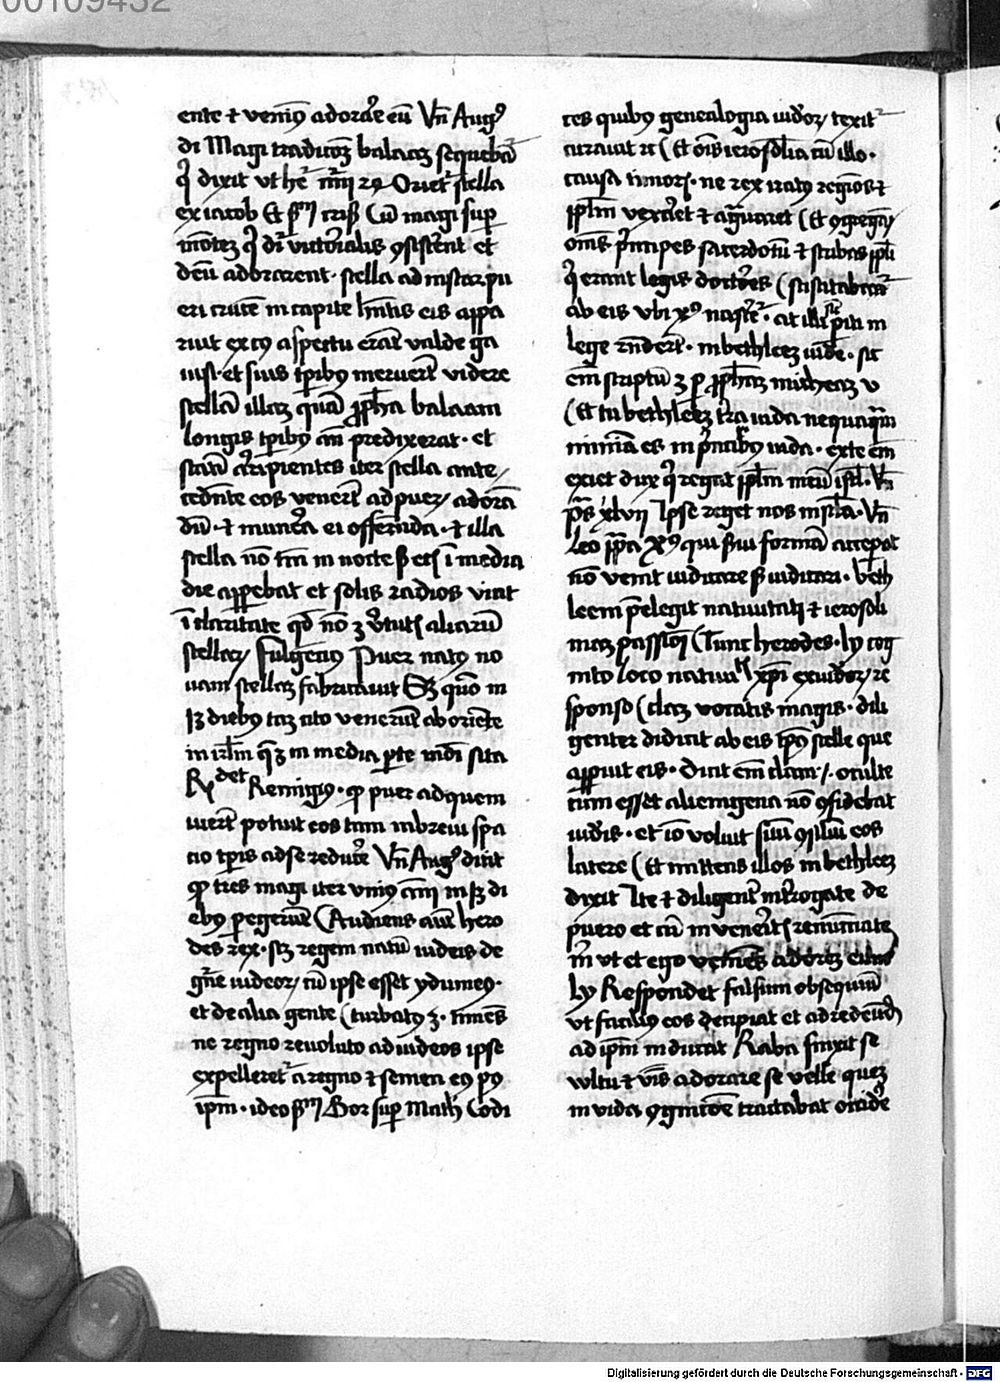 00109432
ente ⁊ venim⁹ adorare eū Vn̄ Aug⁹
di Magi tradicōꝫ balaaꝫ sequebāt
q̄ dixit vt hēt
ex iacob Et
mōteꝫ q̄ dr̄ victorialis ꝯsisterent et
deū adorarent · stella ad instar pu
eri crucē in capite hn̄tis eis appa
ruit ex cuius aspectu erāt valde ga
uisi · et suis tp̄ibꝰ meruerūt videre
stellā illaꝫ quā ꝓpheta balaam
longis tp̄ibꝰ an̄ predixerat · et
statī arripientes iter stella ante
cedente eos venerūt ad pueꝝ adorā
dū · ⁊ munera ei offerenda · ⁊ illa
stella nō tm̄ in nocte sꝫ etī ī media
die apparebat et solis radios vicit
ī claritate qd̄ nō ꝫ v̄tutis aliarū
stellaꝝ Fulgencius Puer natꝰ no
uam stellaꝫ fabricauit Sꝫ quō in
diebꝰ tā cito venerūt ab oriēte
in ihr̄lm q̄ ꝫ in media ꝑte mūdi sita
Rx det Remigius · ꝙ puer ad quem
iuerūt potuit eos tam in breui spa
cio tp̄is ad se reducere Vn̄ Aug⁹ dicit
ꝙ tres magi iter vniꝰ anni in di
ebꝰ ꝑegerūt (Audiens aut hero
des rex · scꝫ regem natū iudeis de
gn̄e iudeoꝝ cū ipse esset ydumeꝰ ·
et de alia gente (turbatꝰ ꝫ · timēs
ne regno reuoluto ad iudeos ipse
expelleretur a regno ⁊ semen eiꝰ pꝰ
ip̄m · ideo Gor sup̄ Math Codi
ces quibꝰ genealogia iudeoꝝ texit
curauit (Et om̄is ierosolia cū illo ·
causa timoris · ne rex iratꝰ regiōs ⁊
pplm̄ vexaret ⁊ agrauaret (Et ꝯgregās
om̄s p̄ncipes sacerdotū ⁊ scribas ppl̄i
q̄ erant legis doctores (sciscitabat
ab eis vbi xp̄s nasceret · at illi periti in
lege rn̄derūt · in bethleeꝫ iude · sic
em̄ scriptū ꝫ ꝑ ꝓphetaꝫ micheaꝫ v
(Et tu bethleeꝫ terra iuda nequaquā
minima es in p̄ncipibꝰ iuda · ex te em̄
exiet dux q̄ regat pplm̄ meū isrl̄ · Vn̄
ps̄ xlvii Ipse reget nos in scl̄a · Vn̄
Leo ppa Xp̄s qui serui formā acceperat
nō venit iudicare sꝫ iudicari · beth
leem p̄elegit natiuitati ⁊ ierosoli
maꝫ passioni (Tunc herodes · Ly cog
nito loco natiuitatis xp̄i ex iudeoꝝ re
sponso (claꝫ vocatis magis · dili
genter didicit ab eis tp̄s stelle que
apparuit eis · Dicit em̄ clam · occulte
cum esset alienigena nō ꝯfidebat
iudeis · et iō voluit suū ꝯsiliū eos
latere (Et mittens illos in bethleeꝫ
dixit Ite ⁊ diligenter interrogate de
puero et cū inveneritis renunciate
m̄ vt et ego veniens adoreꝫ eum
Ly Respondet falsum obsequiū
vt facilius eos decipiat et ad redeundū
ad ip̄m inducat Raba finxit se
wltu ⁊ v̄bis adorare se velle queꝫ
inuida ꝯgnicione tractabat occidere
Digitalisierung gefördert durch die Deutsche Forschungsgemeinschaft - DFG